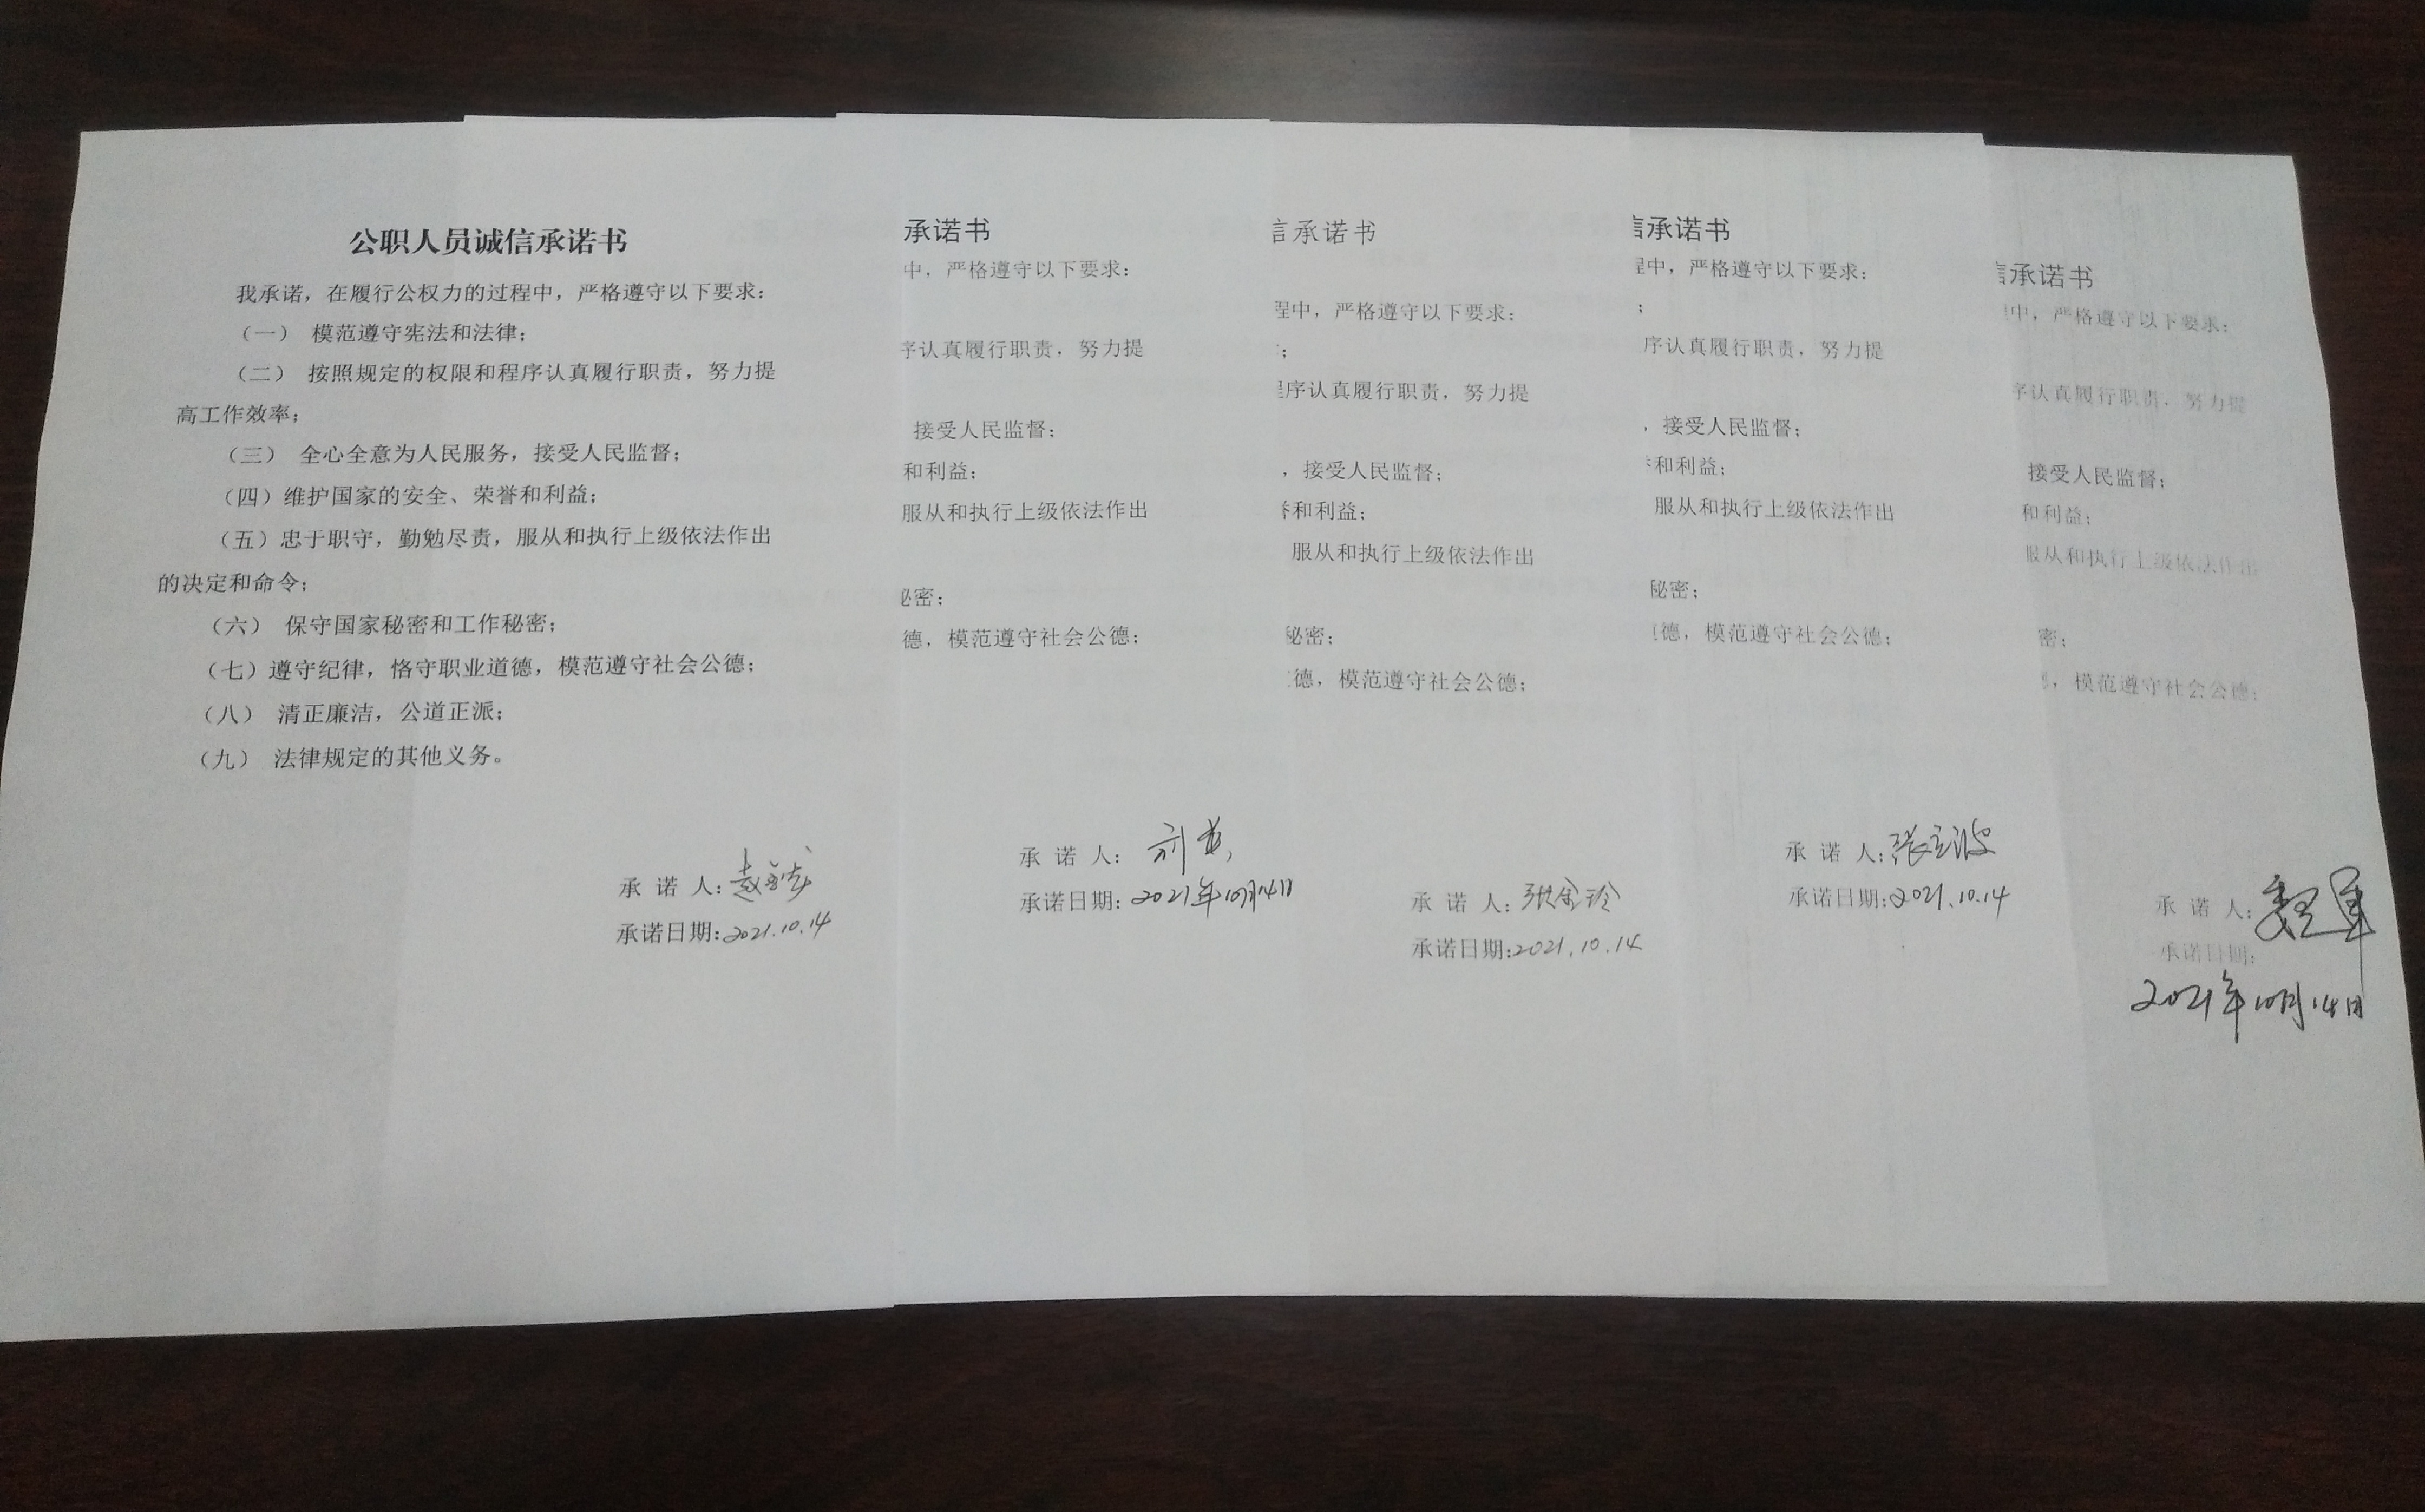 公职人员诚信承诺书
我承诺，在履行公权力的过程中，严格遵守以下要求：
（一） 模范遵守宪法和法律；
（二） 按照规定的权限和程序认真履行职责，努力提
高工作效率；
（三） 全心全意为人民服务，接受人民监督；
（四）维护国家的安全、荣誉和利益；
（五）忠于职守，勤勉尽责，服从和执行上级依法作出
的决定和命令；
（六） 保守国家秘密和工作秘密；
（七）遵守纪律，恪守职业道德，模范遵守社会公德；
（八） 清正廉洁，公道正派；
（九） 法律规定的其他义务。
承 诺 人：
承诺日期：2021.10.14
承诺书
中，严格遵守以下要求：
序认真履行职责，努力提
接受人民监督；
和利益；
服从和执行上级依法作出
密；
德，模范遵守社会公德；
承 诺 人：
承诺日期：2021年10月14日
承诺书
程中，严格遵守以下要求：
；
序认真履行职责，努力提
，接受人民监督；
和利益；
服从和执行上级依法作出
秘密；
德，模范遵守社会公德；
承 诺 人：张金玲
承诺日期：2021.10.14
信承诺书
程中，严格遵守以下要求：
；
序认真履行职责，努力提
，接受人民监督；
和利益；
服从和执行上级依法作出
秘密；
德，模范遵守社会公德；
承 诺 人：张立波
承诺日期：2021.10.14
信承诺书
中，严格遵守以下要求：
序认真履行职责，努力提
接受人民监督；
和利益；
服从和执行上级依法作出
密；
，模范遵守社会公德；
承 诺 人：
承诺日期：
2021年10月14日